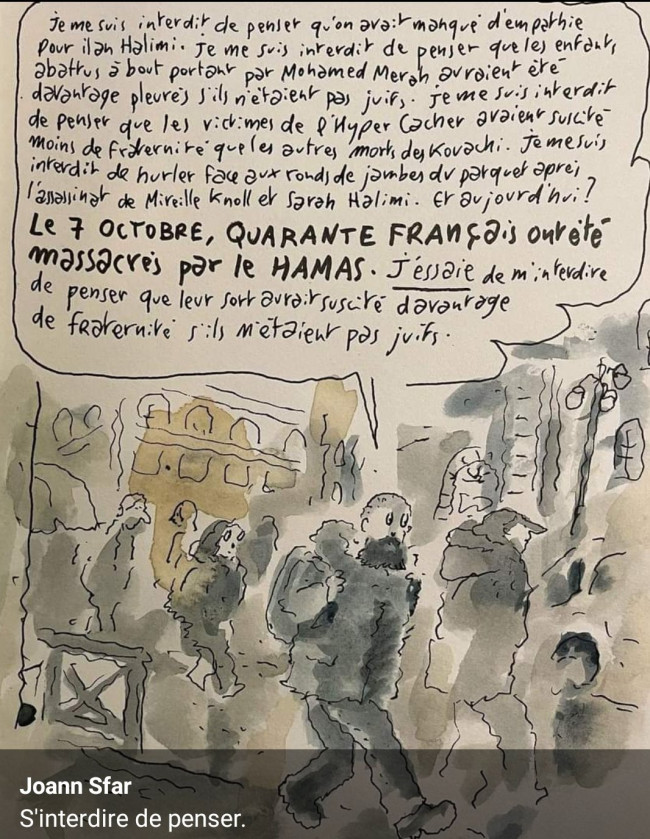 Je me suis interdit de penser qu'on avait manqué d'empathie
pour ilan Halimi. Je me suis interdit de penser que les enfants
abattus à bout portant par Mohamed Merah auraient été
davantage pleurés s'ils n'étaient pas juifs. Je me suis interdit
de penser que les victimes de l'Hyper Cacher avaient suscité
moins de fraternité que les autres morts des Kovachi. Je me suis
interdit de hurler face aux ronds de jambes du parquet après
l'assassinat de Mireille Knoll et Sarah Halimi. Et aujourd'hui?
Le 7 OCTOBRE, QUARANTE FRANçais ont été
massacrés par le HAMAS. J'éssaie de m'interdire
de penser que leur sort aurait suscité davantage
de fraternité s'ils n'étaient pas juifs.
Joann Sfar
S'interdire de penser.